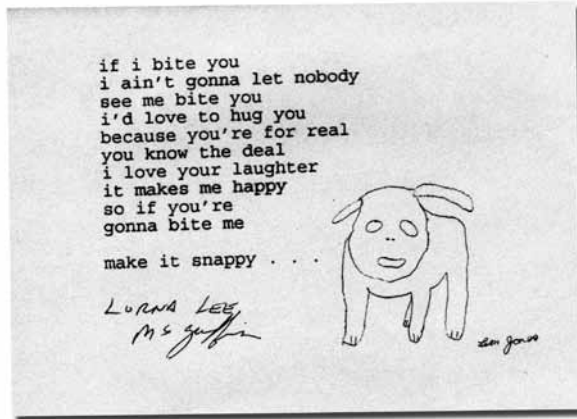 if i bite you
i ain't gonna let nobody
see me bite you
i'd love to hug you
because you're for real
you know the deal
i love your laughter
it makes me happy
so if you're
gonna bite me
make it snappy . . .
LORNA LEE
Jones